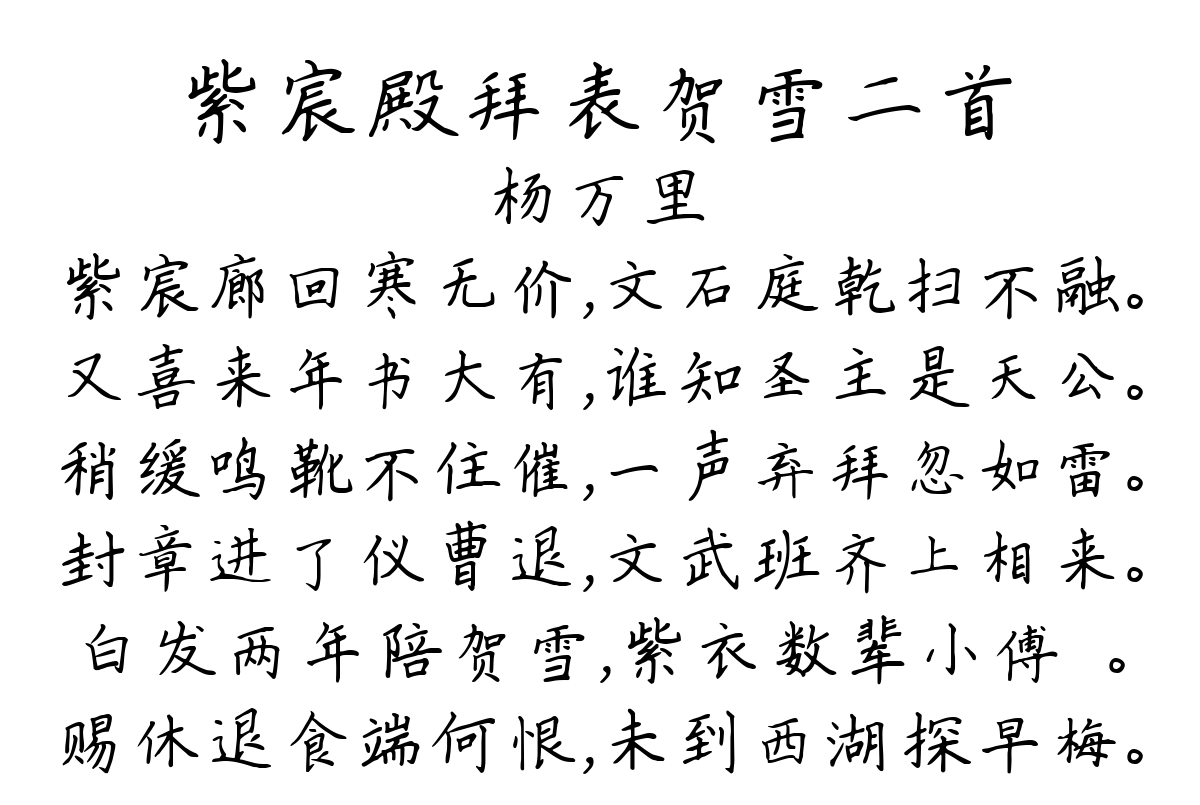 紫宸殿拜表贺雪二首
杨万里
紫宸廊回寒无价,文石庭乾扫不融。
又喜来年书大有,谁知圣主是天公。
稍缓鸣靴不住催,一声弃拜忽如雷。
封章进了仪曹退,文武班齐上相来。
白发两年陪贺雪,紫衣数辈小傅 。
赐休退食端何恨,未到西湖探早梅。